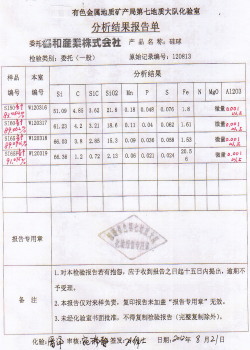 有色金属地质矿产局第七地质大队化验室
分析结果报告单
委托 協和產業株式会社 产品名称：硅球
检验类别：委托（一般） 原始记录编号：120813
样品编号 本室编号 分析结果
Si C SiC SiO2 Mn P S Fe N MgO Al2O3
W120316 81.09 4.65 3.62 21.9 0.18 0.045 0.076 1.8 微量
W120317 81.23 4.2 3.21 19.6 0.11 0.04 0.062 1.61 微量
W120318 86.03 3.6 2.85 15.3 0.09 0.036 0.053 1.58 微量
W120319 66.36 1.2 0.72 2.13 0.06 0.021 0.024 20.56 微量
报告专用章
备注
1.对本检验报告若有抱怨，应于收到报告之日起十五日内提出，逾期不予受理。
2.本报告仅对来样负责。复印报告未加盖“报告专用章”无效。
3.未经化验室书面批准，不得复制检验报告（完整复制除外）。
化验: 签发: 日期: 2012年 8月21日